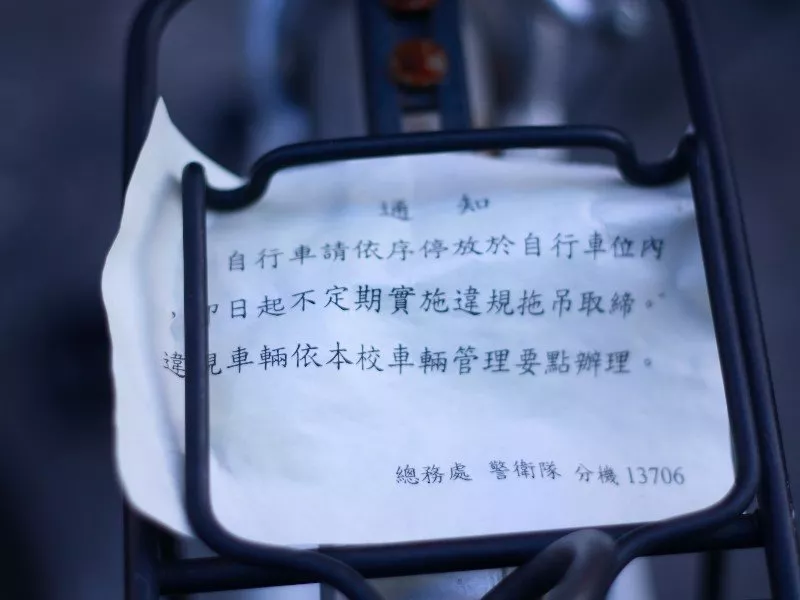 通 知
自行車請依序停放於自行車位內
，即日起不定期實施違規拖吊取締。
違規車輛依本校車輛管理要點辦理。
總務處 警衛隊 分機 13706